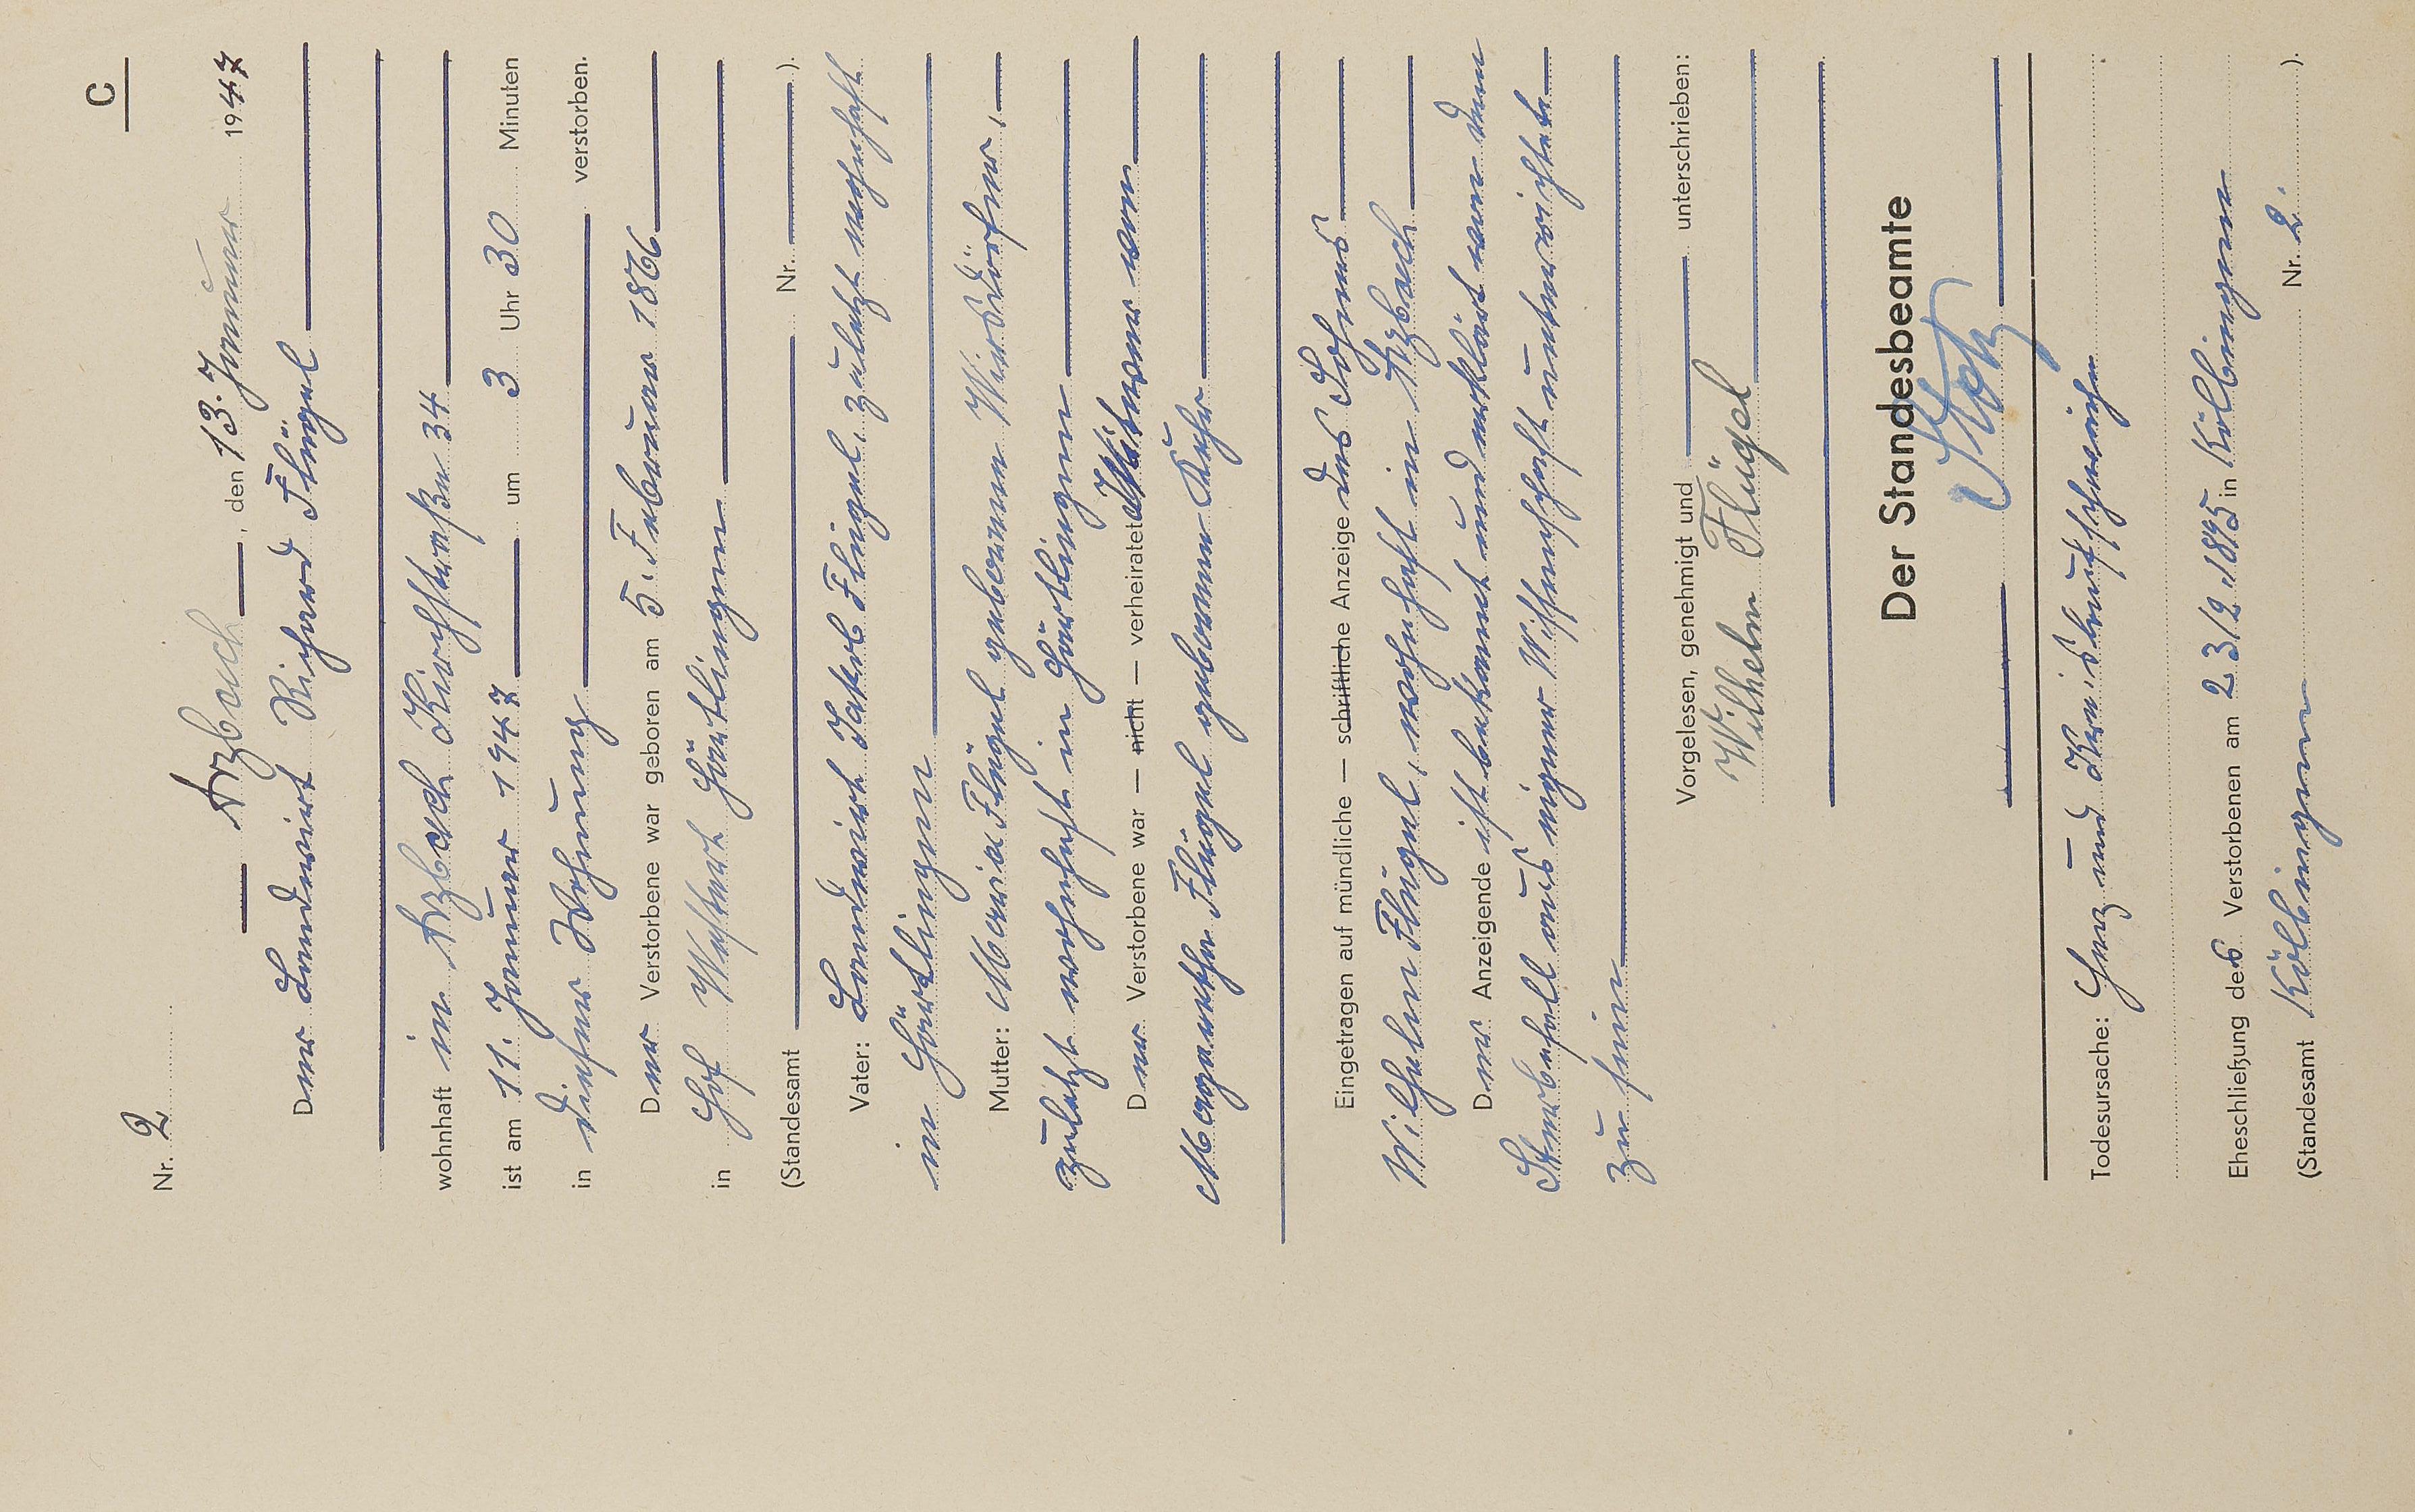 C
Nr. 2
Arzbach, den 13. Januar 1947
Der Landwirt Richard Flügel
wohnhaft in Arzbach Kirchstraße 34
ist am 11. Januar 1947 um 3 Uhr 30 Minuten
in dieser Wohnung verstorben.
Der Verstorbene war geboren am 5. Februar 1866
in Hof Westert Härtlingen
(Standesamt Nr. ).
Vater: Landwirt Jakob Flügel, zuletzt wohnhaft
in Härtlingen
Mutter: Maria Flügel geborene Wirsdörfer,
zuletzt wohnhaft in Härtlingen
Der Verstorbene war — nicht — verheiratet Witwer von
Margarethe Flügel geborenen Kuhr
Eingetragen auf mündliche — schriftliche Anzeige des Sohnes
Wilhelm Flügel, wohnhaft in Arzbach
Der Anzeigende ist bekannt und erklärt von dem
Sterbefall aus eigener Wissenschaft unterrichtet
zu sein
Vorgelesen, genehmigt und unterschrieben:
Wilhelm Flügel
Der Standesbeamte
Todesursache: Herz und Kreislaufschwäche
Eheschließung des Verstorbenen am 23/2 1895 in Kölbingen
(Standesamt Kölbingen Nr. 2. ).